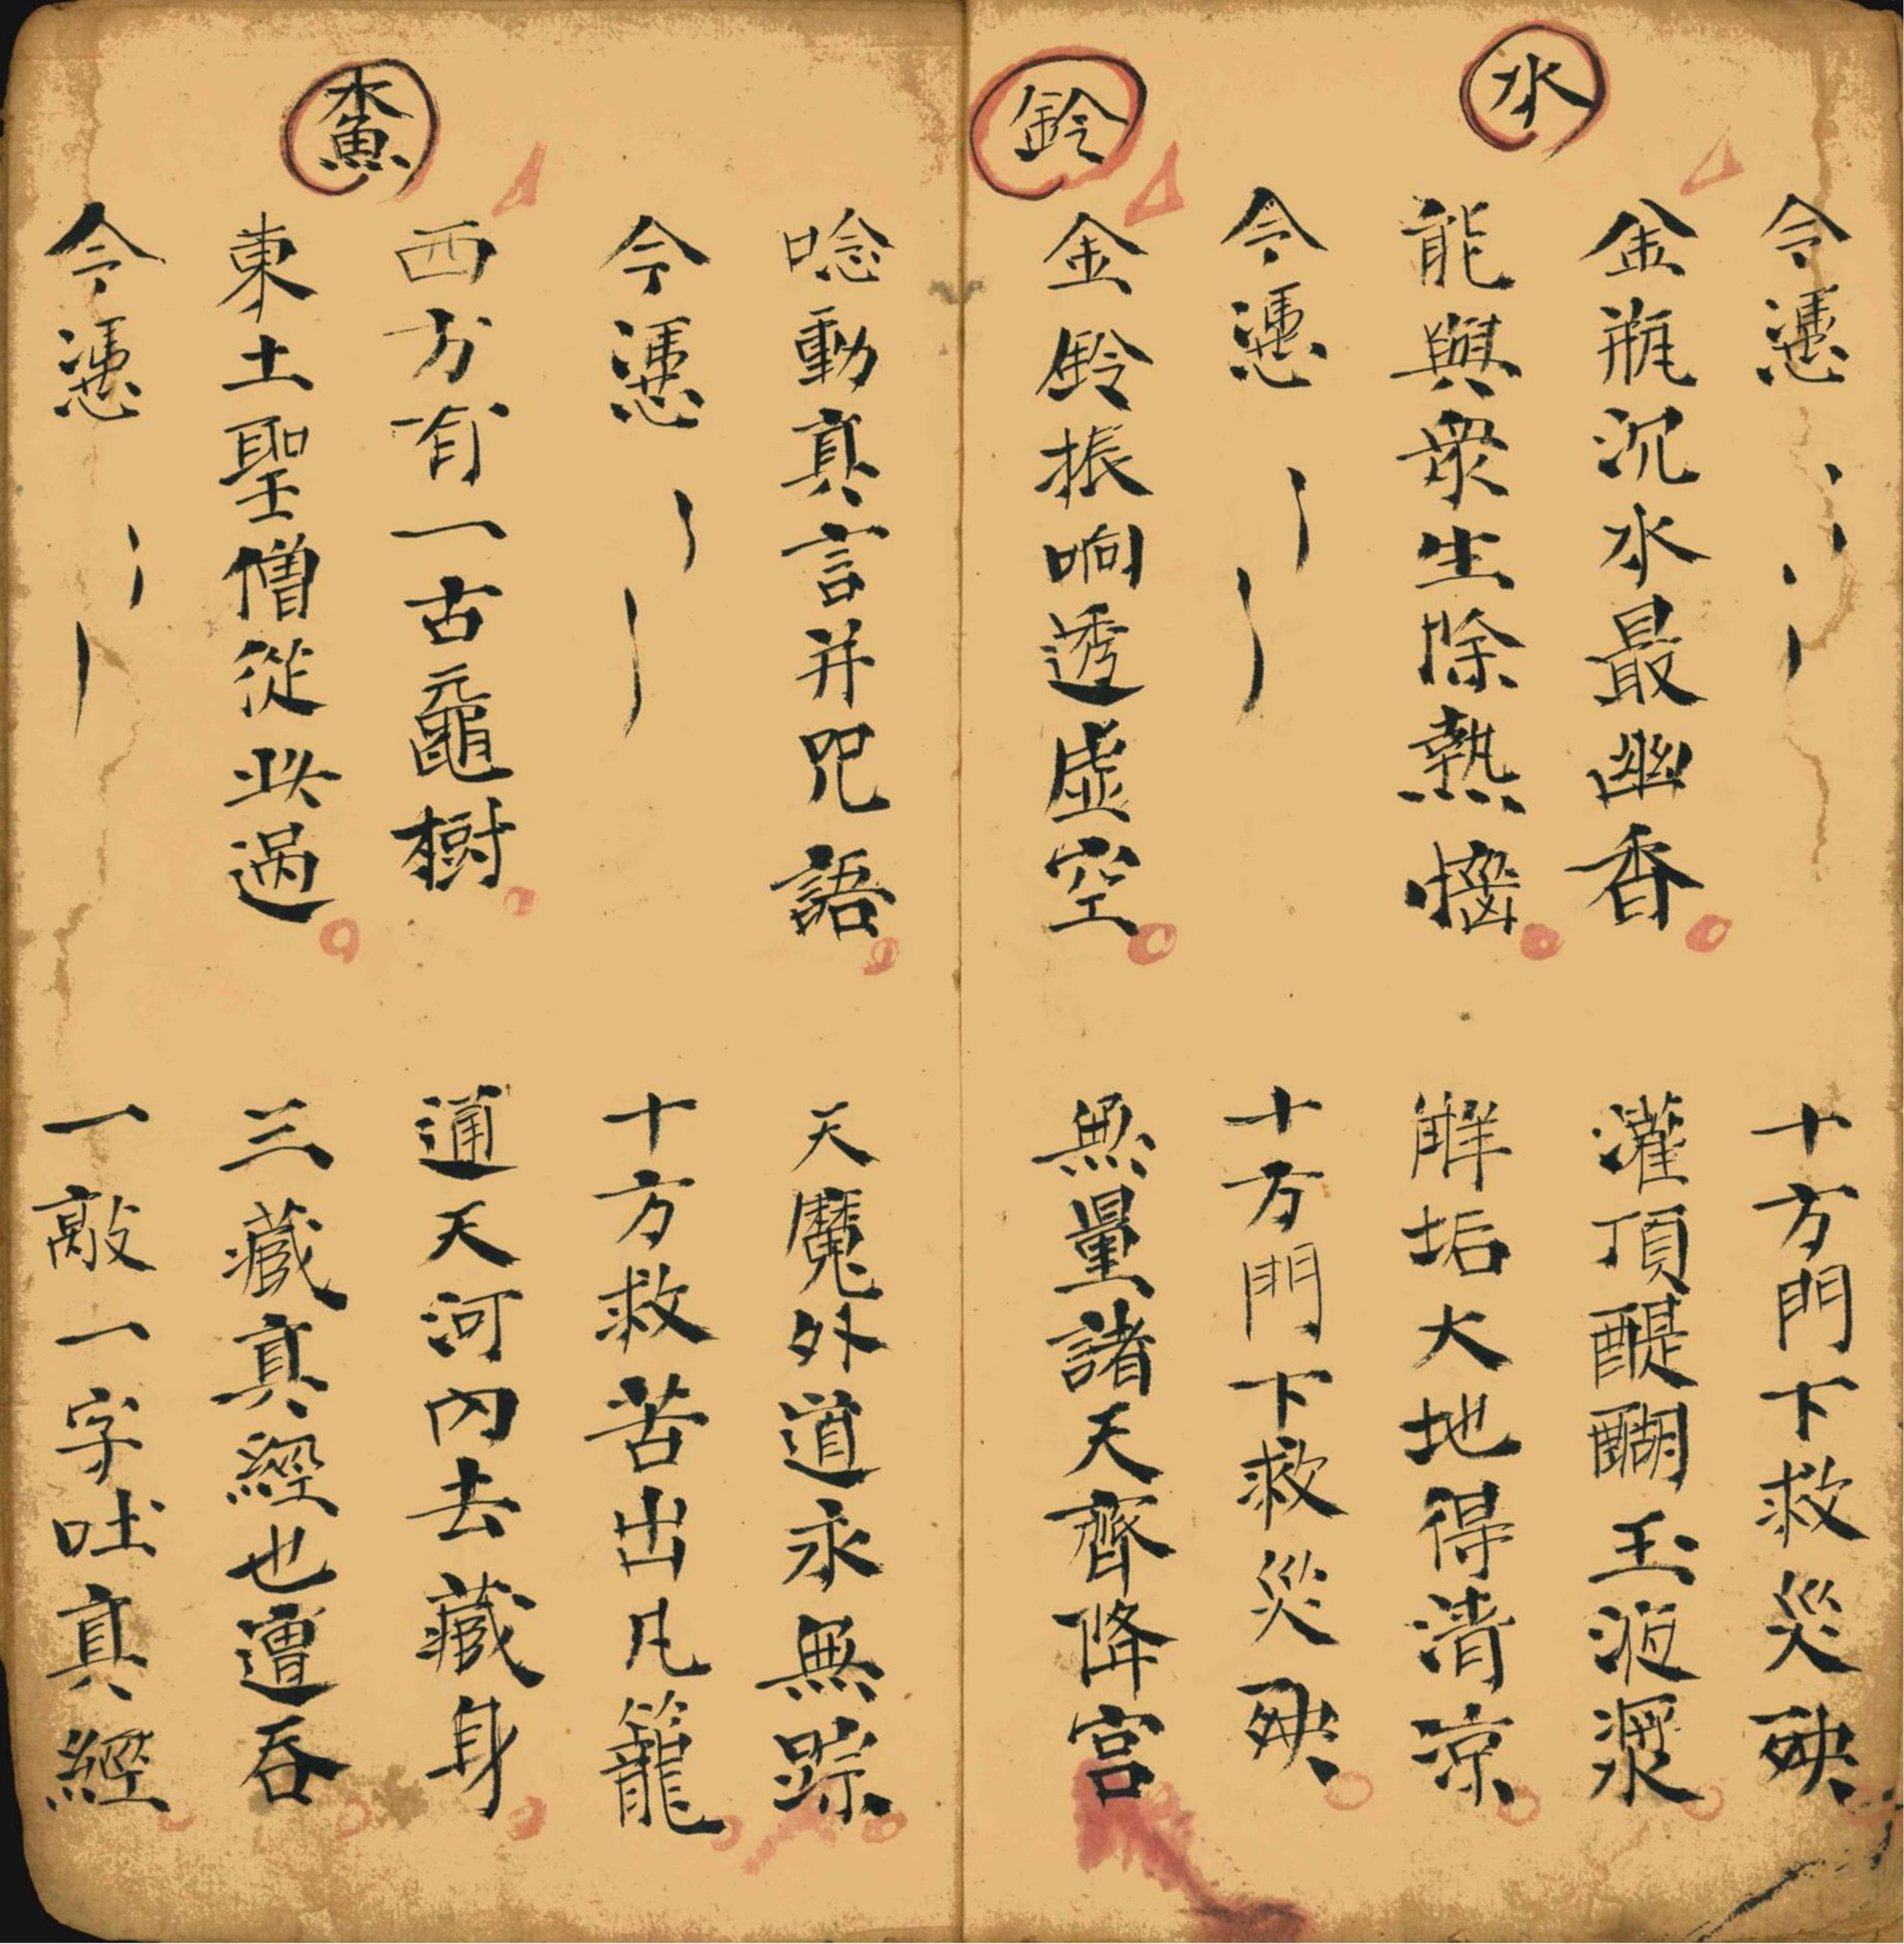 今慿 十方門下救災殃
水
金瓶沉水最幽香 灌頂醍醐玉液漿
能與衆生除熱惱 解垢大地得清凉
今慿 十方門下救災殃
鈴
金鈴振响透虚空 無量諸天齊降宫
唸動真言并咒語 天魔外道永無踪
今慿 十方救苦出凡籠
木魚
西方有一古黿樹 通天河內去藏身
東土聖僧從此過 三藏真經也遭吞
今慿 一敲一字吐真經